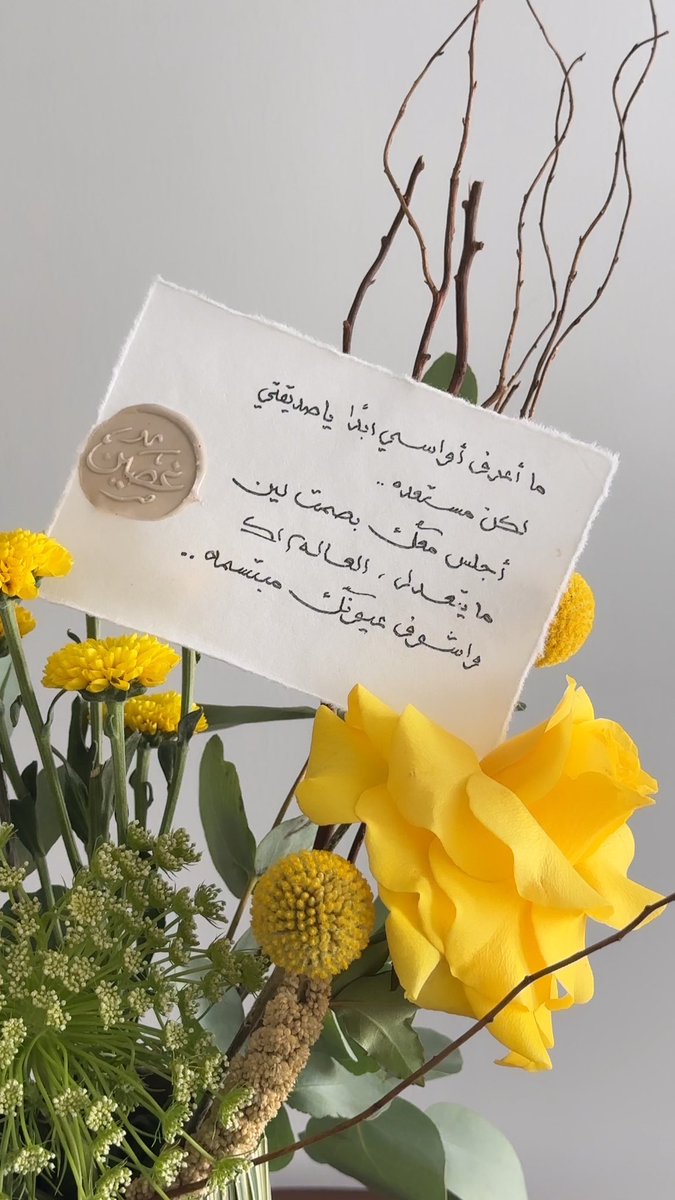 ما أعرف أواسي أبدًا ياصديقتي
لكن مستعده ..
أجلس معك بصمت لين
ما يتعدل، العالم لك
واشوف عيونك مبتسمه ..
غصين